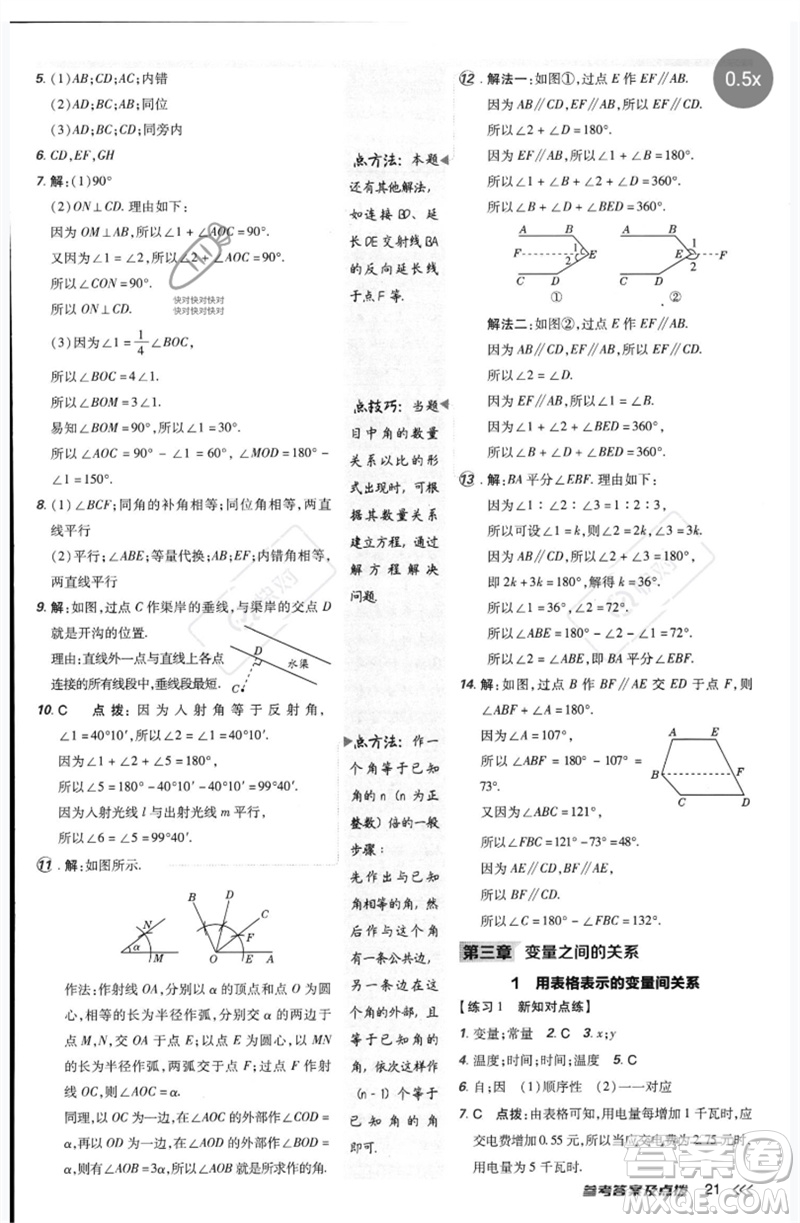 5. (1)AB;CD;AC;内错
(2)AD;BC;AB;同位
(3)AD;BC;AB;同旁内
6. CD,EF,GH
7. 解:(1)90°
(2)ON⊥CD. 理由如下:
因为 OM⊥AB,所以∠1+∠AOC=90°.
又因为∠1=∠2,所以∠2+∠AOC=90°.
所以∠CON=90°.
所以 ON⊥CD.
(3)因为∠1=1/4∠BOC,
所以∠BOC=4∠1.
所以∠BOM=3∠1.
易知∠BOM=90°,所以∠1=30°.
所以∠AOC=90°-∠1=60°,∠MOD=180°-
∠1=150°.
8. (1)∠BCF;同角的补角相等;同位角相等,两直
线平行
(2)平行;∠ABF;等量代换;AB;EF;内错角相等,
两直线平行
9. 解:如图,过点 C 作渠岸的垂线,与渠岸的交点 D
就是开沟的位置.
理由:直线外一点与直线上各点
连接的所有线段中,垂线段最短.
D
水渠
C
10. C 点拨:因为入射角等于反射角,
∠1=40°10′,所以∠2=∠1=40°10′.
因为∠1+∠2+∠5=180°,
所以∠5=180°-40°10′-40°10′=99°40′.
因为入射光线 l 与出射光线 m 平行,
所以∠6=∠5=99°40′.
11. 解:如图所示.
N
α
M
B
D
C
F
O
E
A
作法:作射线 OA,分别以α的顶点和点 O 为圆
心,相等的长为半径作弧,分别交α的两边于
点 M,N,交 OA 于点 E;以点 E 为圆心,以 MN
的长为半径作弧,与前面的弧交于点 F,过点 F
作射线 OC,则∠AOC=α.
同理,以 OC 为一边,在∠AOC 的外部作∠COD=
α,再以 OD 为一边,在∠AOD 的外部作∠DOB=
α,则∠AOB=3α,所以∠AOB 就是所求作的角.
快对快对快对
快对快对快对
快对
点方法:本题
还有其他解法,
如连接BD、延
长DE交射线BA
的反向延长线
于点F等.
点技巧:当题
目中角的数量
关系以比的形
式出现时,可根
据其数量关系
建立方程,通过
解方程解决
问题.
点方法:作一
个角等于已知
角的n(n为正
整数)倍的一般
步骤:
先作出与已知
角相等的角,
然后作与这个
角有公共边,
另一条边在这
个角的外部,且
等于已知角的
角,依次这样作
(n-1)个等于
已知角的角
即可.
12. 解法一:如图①,过点 E 作 EF∥AB.
因为 AB∥CD,所以 EF∥CD.
所以∠2+∠D=180°.
因为 EF∥AB,所以∠1+∠B=180°.
所以∠1+∠B+∠2+∠D=360°.
所以∠B+∠D+∠BED=360°.
A B
F 1 2 E
C D
①
A B
1 2 E F
C D
②
解法二:如图②,过点 E 作 EF∥AB.
因为 AB∥CD,所以 EF∥CD.
所以∠2=∠D.
因为 EF∥AB,所以∠1=∠B.
因为∠1+∠2+∠BED=360°,
所以∠B+∠D+∠BED=360°.
13. 解:BA 平分∠EBF. 理由如下:
因为∠1∶∠2∶∠3=1∶2∶3,
所以可设∠1=k,则∠2=2k,∠3=3k.
因为 AB∥CD,所以∠2+∠3=180°,
即 2k+3k=180°,解得 k=36°.
所以∠1=36°,∠2=72°.
所以∠ABE=180°-∠2-∠1=72°.
所以∠2=∠ABE,即 BA 平分∠EBF.
14. 解:如图,过点 B 作 BF∥AE 交 ED 于点 F,则
∠ABF+∠A=180°.
因为∠A=107°,
所以∠ABF=180°-107°=
73°.
又因为∠ABC=121°,
所以∠FBC=121°-73°=48°.
因为 AE∥CD,BF∥AE,
所以 BF∥CD.
所以∠C+∠FBC=180°.
所以∠C=180°-∠FBC=132°.
A E
B F
C D
第三章 变量之间的关系
1 用表格表示的变量间关系
【练习1 新知对点练】
1. 变量;常量 2. C 3. x;y
4. 温度;时间;时间;温度 5. C
6. 自;因 (1)顺序性 (2)一一对应
7. C 点拨:由表格可知,用电量每增加 1 千瓦时,应
交电费增加 0.55 元,所以当应交电费为 2.75 元时,
用电量为 5 千瓦时.
参考答案及点拨 21
0.5x
答案圈